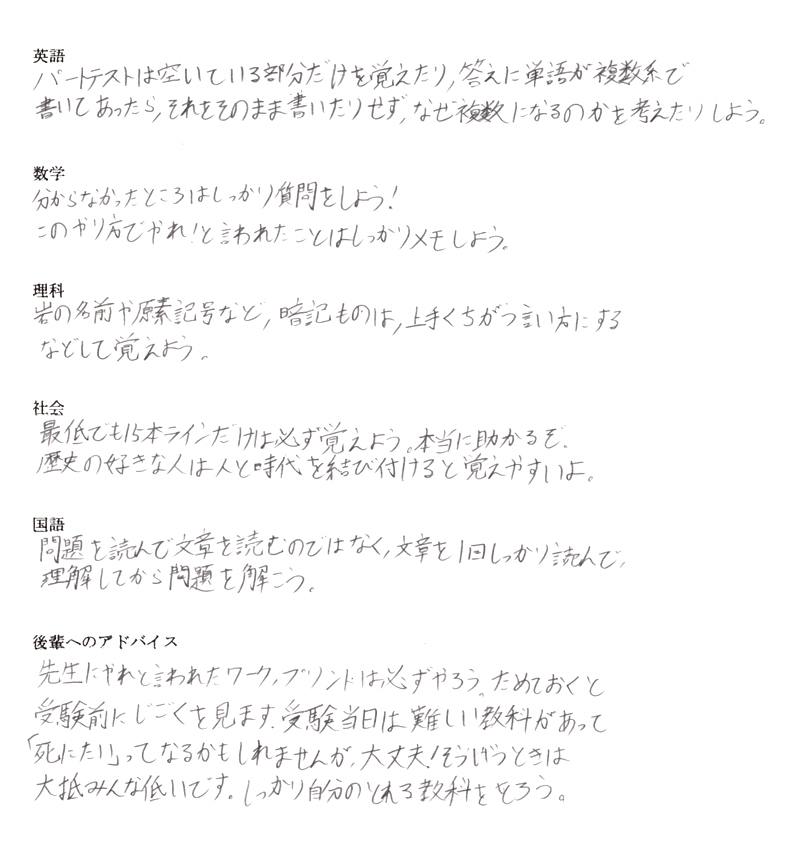 英語
パートテストは空いている部分だけを覚えたり,答えに単語が複数系で
書いてあったら,それをそのまま書いたりせず,なぜ複数になるのかを考えたりしよう。
数学
分からなかったところはしっかり質問をしよう!
このやり方でやれ!と言われたことはしっかりメモしよう。
理科
岩の名前や原素記号など,暗記ものは,上手くちがう言い方にする
などして覚えよう。
社会
最低でも15本ラインだけは必ず覚えよう。本当に助かるぞ.
歴史の好きな人は人と時代を結び付けると覚えやすいよ。
国語
問題を読んで文章を読むのではなく,文章を1回しっかり読んで,
理解してから問題を解こう。
後輩へのアドバイス
先生にやれと言われたワーク,プリントは必ずやろう。ためておくと
受験前にじごくを見ます.受験当日は難しい教科があって
「死にたい」ってなるかもしれませんが,大丈夫!そういうときは
大抵みんな低いです。しっかり自分のとれる教科をとろう。